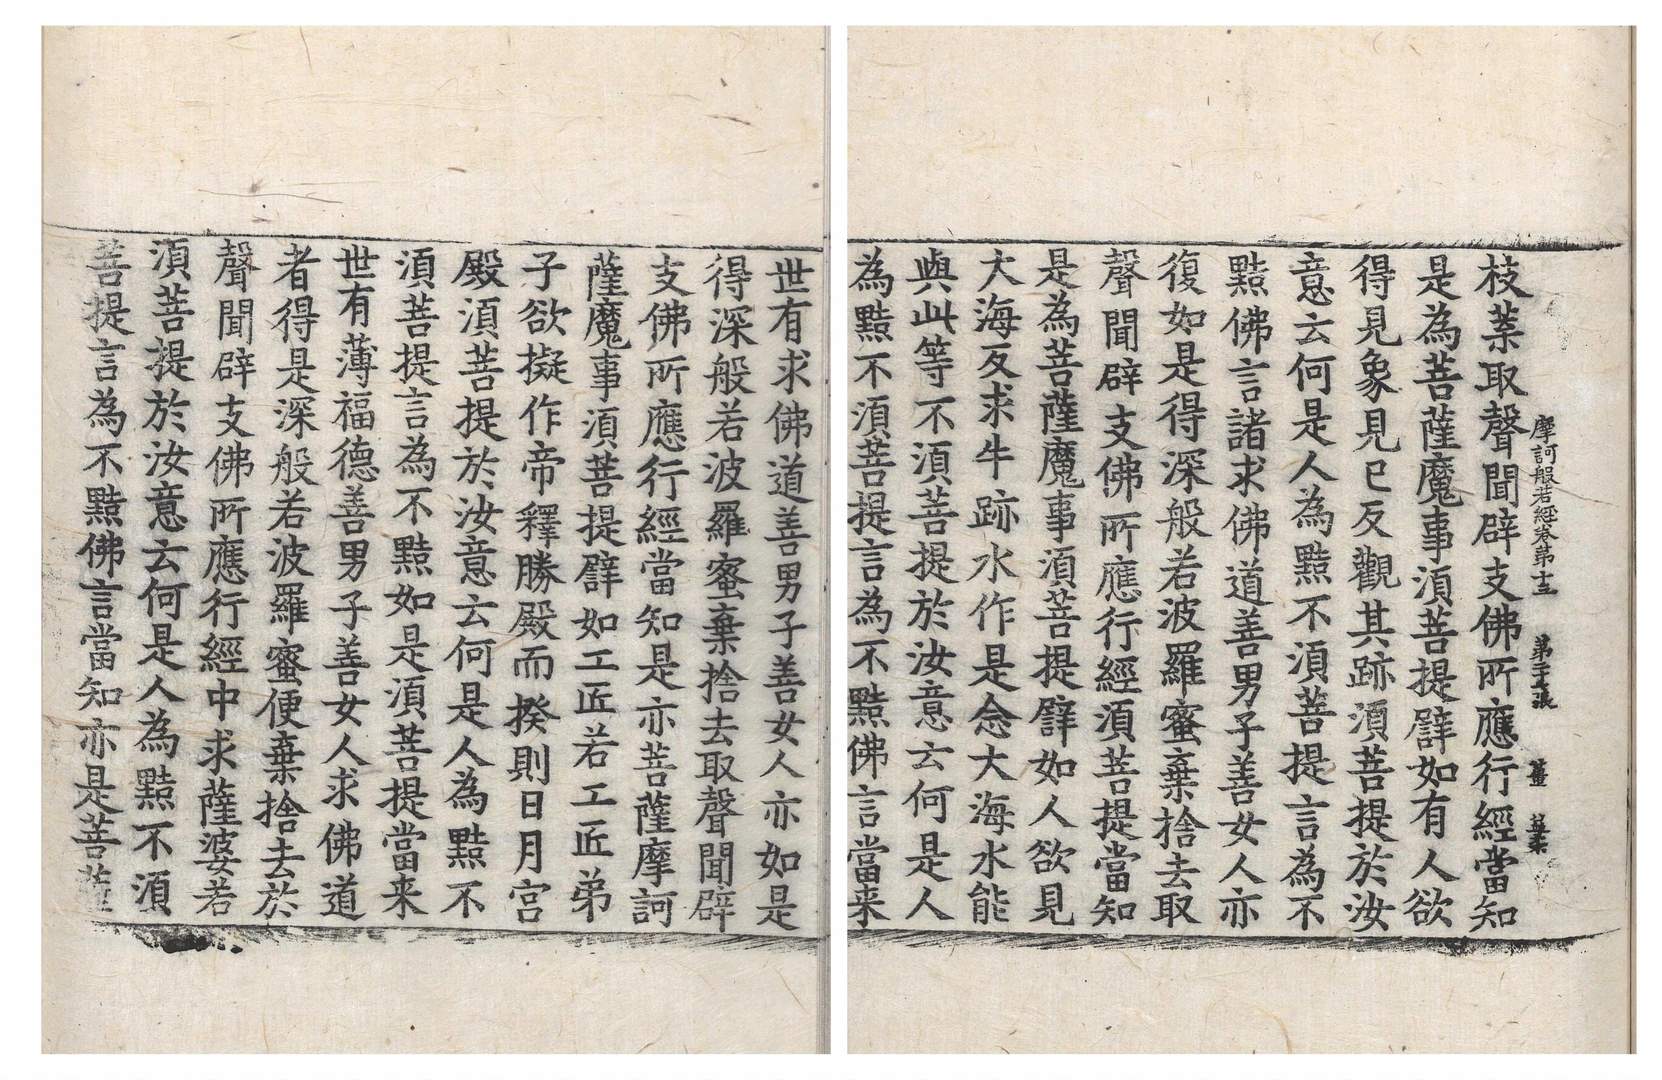 摩訶般若經卷第十三 第二十張 薑
枝葉取聲聞辟支佛所應行經當知
是為菩薩魔事須菩提譬如有人欲
得見象見已反觀其跡須菩提於汝
意云何是人為黠不須菩提言為不
黠佛言諸求佛道善男子善女人亦
復如是得深般若波羅蜜棄捨去取
聲聞辟支佛所應行經須菩提當知
是為菩薩魔事須菩提譬如人欲見
大海反求牛跡水作是念大海水能
與此等不須菩提於汝意云何是人
為黠不須菩提言為不黠佛言當来
世有求佛道善男子善女人亦如是
得深般若波羅蜜棄捨去取聲聞辟
支佛所應行經當知是亦菩薩摩訶
薩魔事須菩提譬如工匠若工匠弟
子欲擬作帝釋勝殿而揆則日月宮
殿須菩提於汝意云何是人為黠不
須菩提言為不黠如是須菩提當来
世有薄福德善男子善女人求佛道
者得是深般若波羅蜜便棄捨去於
聲聞辟支佛所應行經中求薩婆若
須菩提於汝意云何是人為黠不須
菩提言為不黠佛言當知亦是菩薩